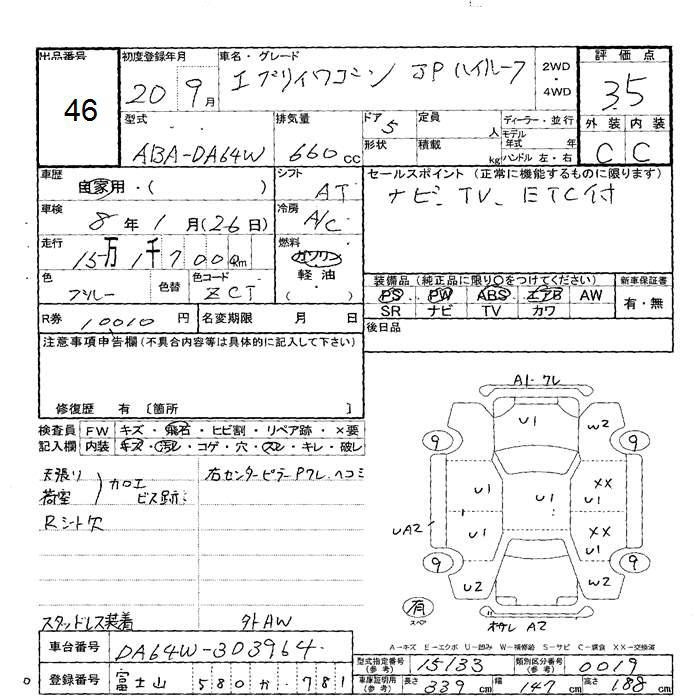 出品番号 初度登録年月 車名・グレード 評価点
46 20 9月 エブリイワゴン JPハイルーフ 2WD・4WD 3.5
型式 排気量 ドア 5 定員 人 ディーラー・並行 外装 内装
ABA-DA64W 660cc 形状 積載 kg モデル年式 年 ハンドル 左・右 C C
車歴 自家用・( ) シフト AT セールスポイント(正常に機能するものに限ります)
ナビ、TV、ETC付
車検 8年1月(26日) 冷房 A/C
走行 15万1千700Km 燃料 ガソリン 軽油 ( )
色 ブルー 色替 色コード ZCT
装備品(純正品に限り○をつけてください) 新車保証書
PS PW ABS エアB AW 有・無
SR ナビ TV カワ
R券 10010円 名変期限 月 日 後日品
注意事項申告欄(不具合内容等は具体的に記入して下さい)
修復歴 有 〔箇所 〕
検査員記入欄 FW キズ・飛石・ヒビ割・リペア跡・×要
内装 キズ・汚レ・コゲ・穴・スレ・キレ・破レ
天張り 荷室 加工ビス跡
Rシート欠
右センターピラーPワレ、ヘコミ
スタッドレス装着 外AW
A1・ワレ
U1 W2
9 9
U1 U1 XX U1
UA2 U1 XX U1
9 9
U2 W2
有 スペア
A2
A-キズ E-エクボ U-凹み W-補修跡 S-サビ C-腐食 XX-交換済
車台番号 DA64W-303964
型式指定番号(参考) 15133 類別区分番号(参考) 0019
登録番号 富士山 580 か 781
車庫証明用(参考) 長さ 339cm 幅 147cm 高さ 188cm